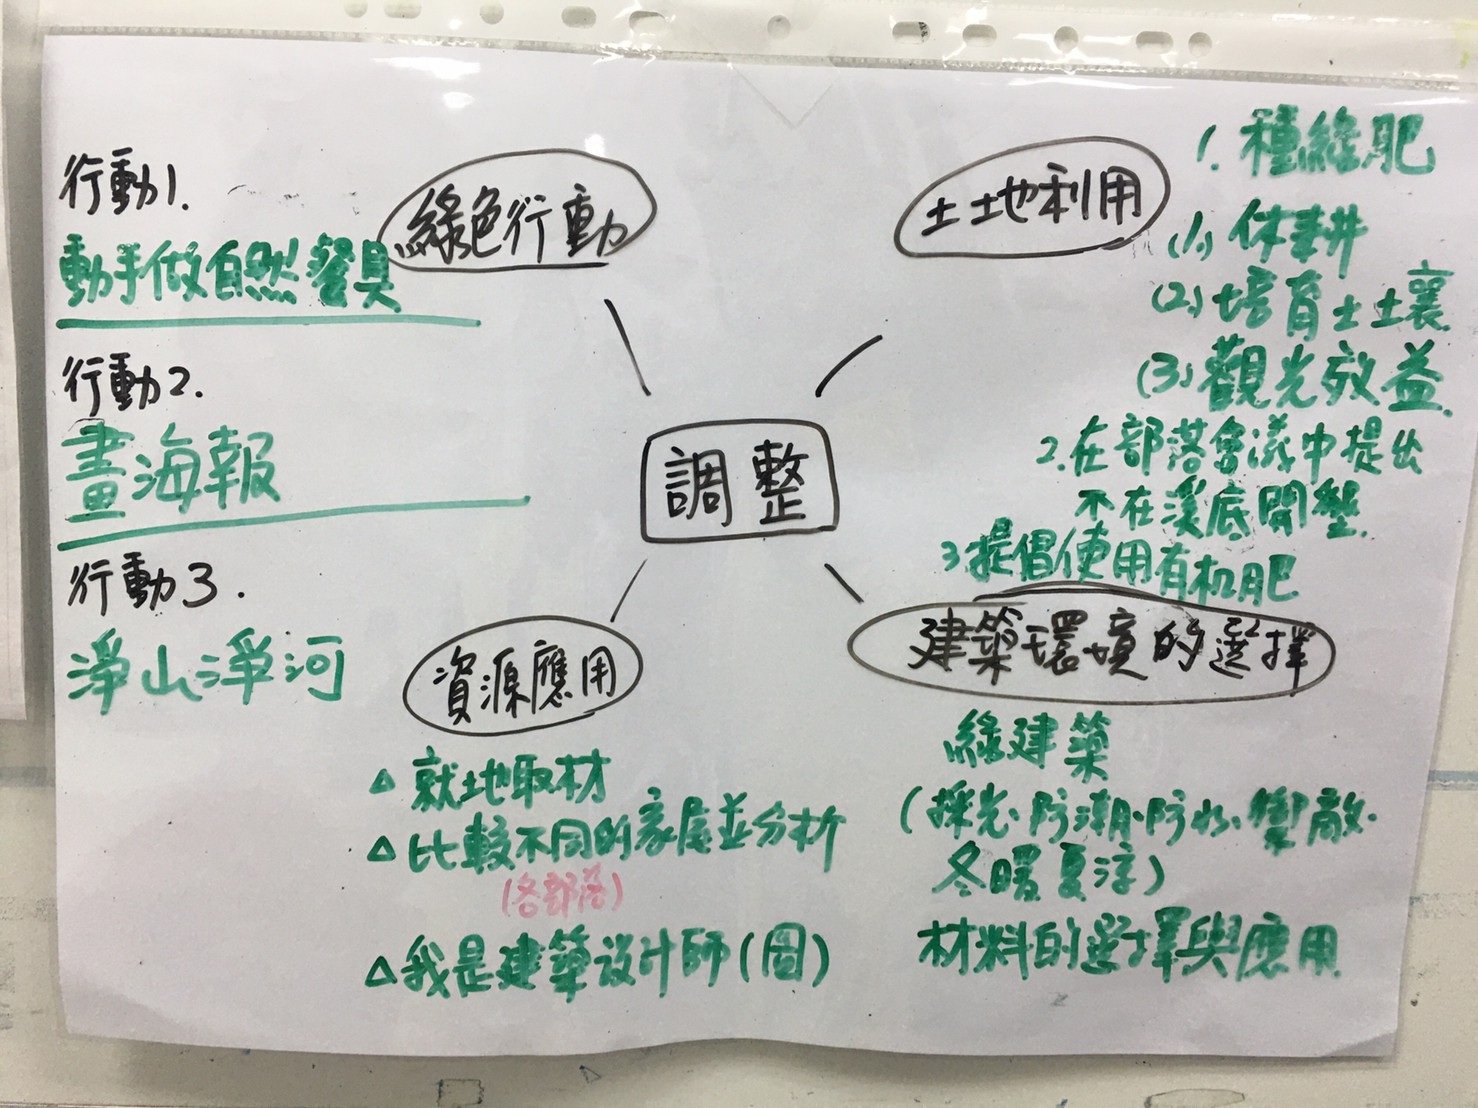 調整
綠色行動
行動1.
動手做自然餐具
行動2.
畫海報
行動3.
淨山淨河
土地利用
1. 種綠肥
(1.) 休耕
(2) 培育土壤
(3) 觀光效益
2.在部落會議中提出
不在溪底開墾
3.提倡使用有机肥
資源應用
△就地取材
△比較不同的家屋並分析
(各部落)
△我是建築設計師(圖)
建築環境的選擇
綠建築
(採光.防潮.防水.
冬暖夏涼)
材料的選擇與應用